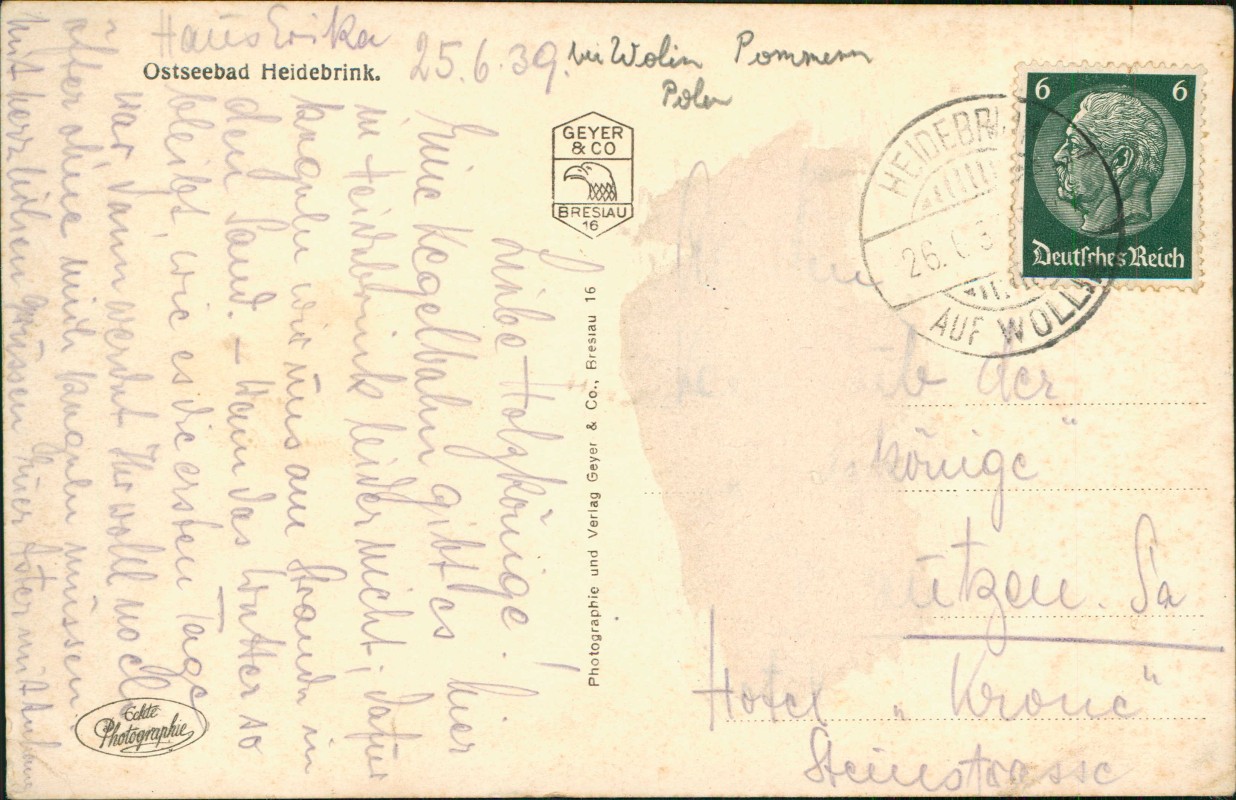 Haus Erika
Ostseebad Heidebrink.
25.6.39.
bei Wolin Pommern
Polen
GEYER
& CO
BRESLAU
16
Liebe Holzkönige!
Eine Kegelbahn gibt es hier
in Heidebrink leider nicht, dafür
kugeln wir uns am Strande in
den Sand. – Wenn das Wetter so
bleibt, wie es die ersten Tage
war, dann werdet Ihr wohl noch
öfter ohne mich kegeln müssen
mit herzlichen Grüssen
Photographie und Verlag Geyer & Co., Breslau 16
Echte
Photographie
HEIDEBRINK
26. 6. 3
AUF WOLLIN
6 6
Deutsches Reich
der
könige"
utzen. Sa
Hotel "Krone"
Steinstrasse